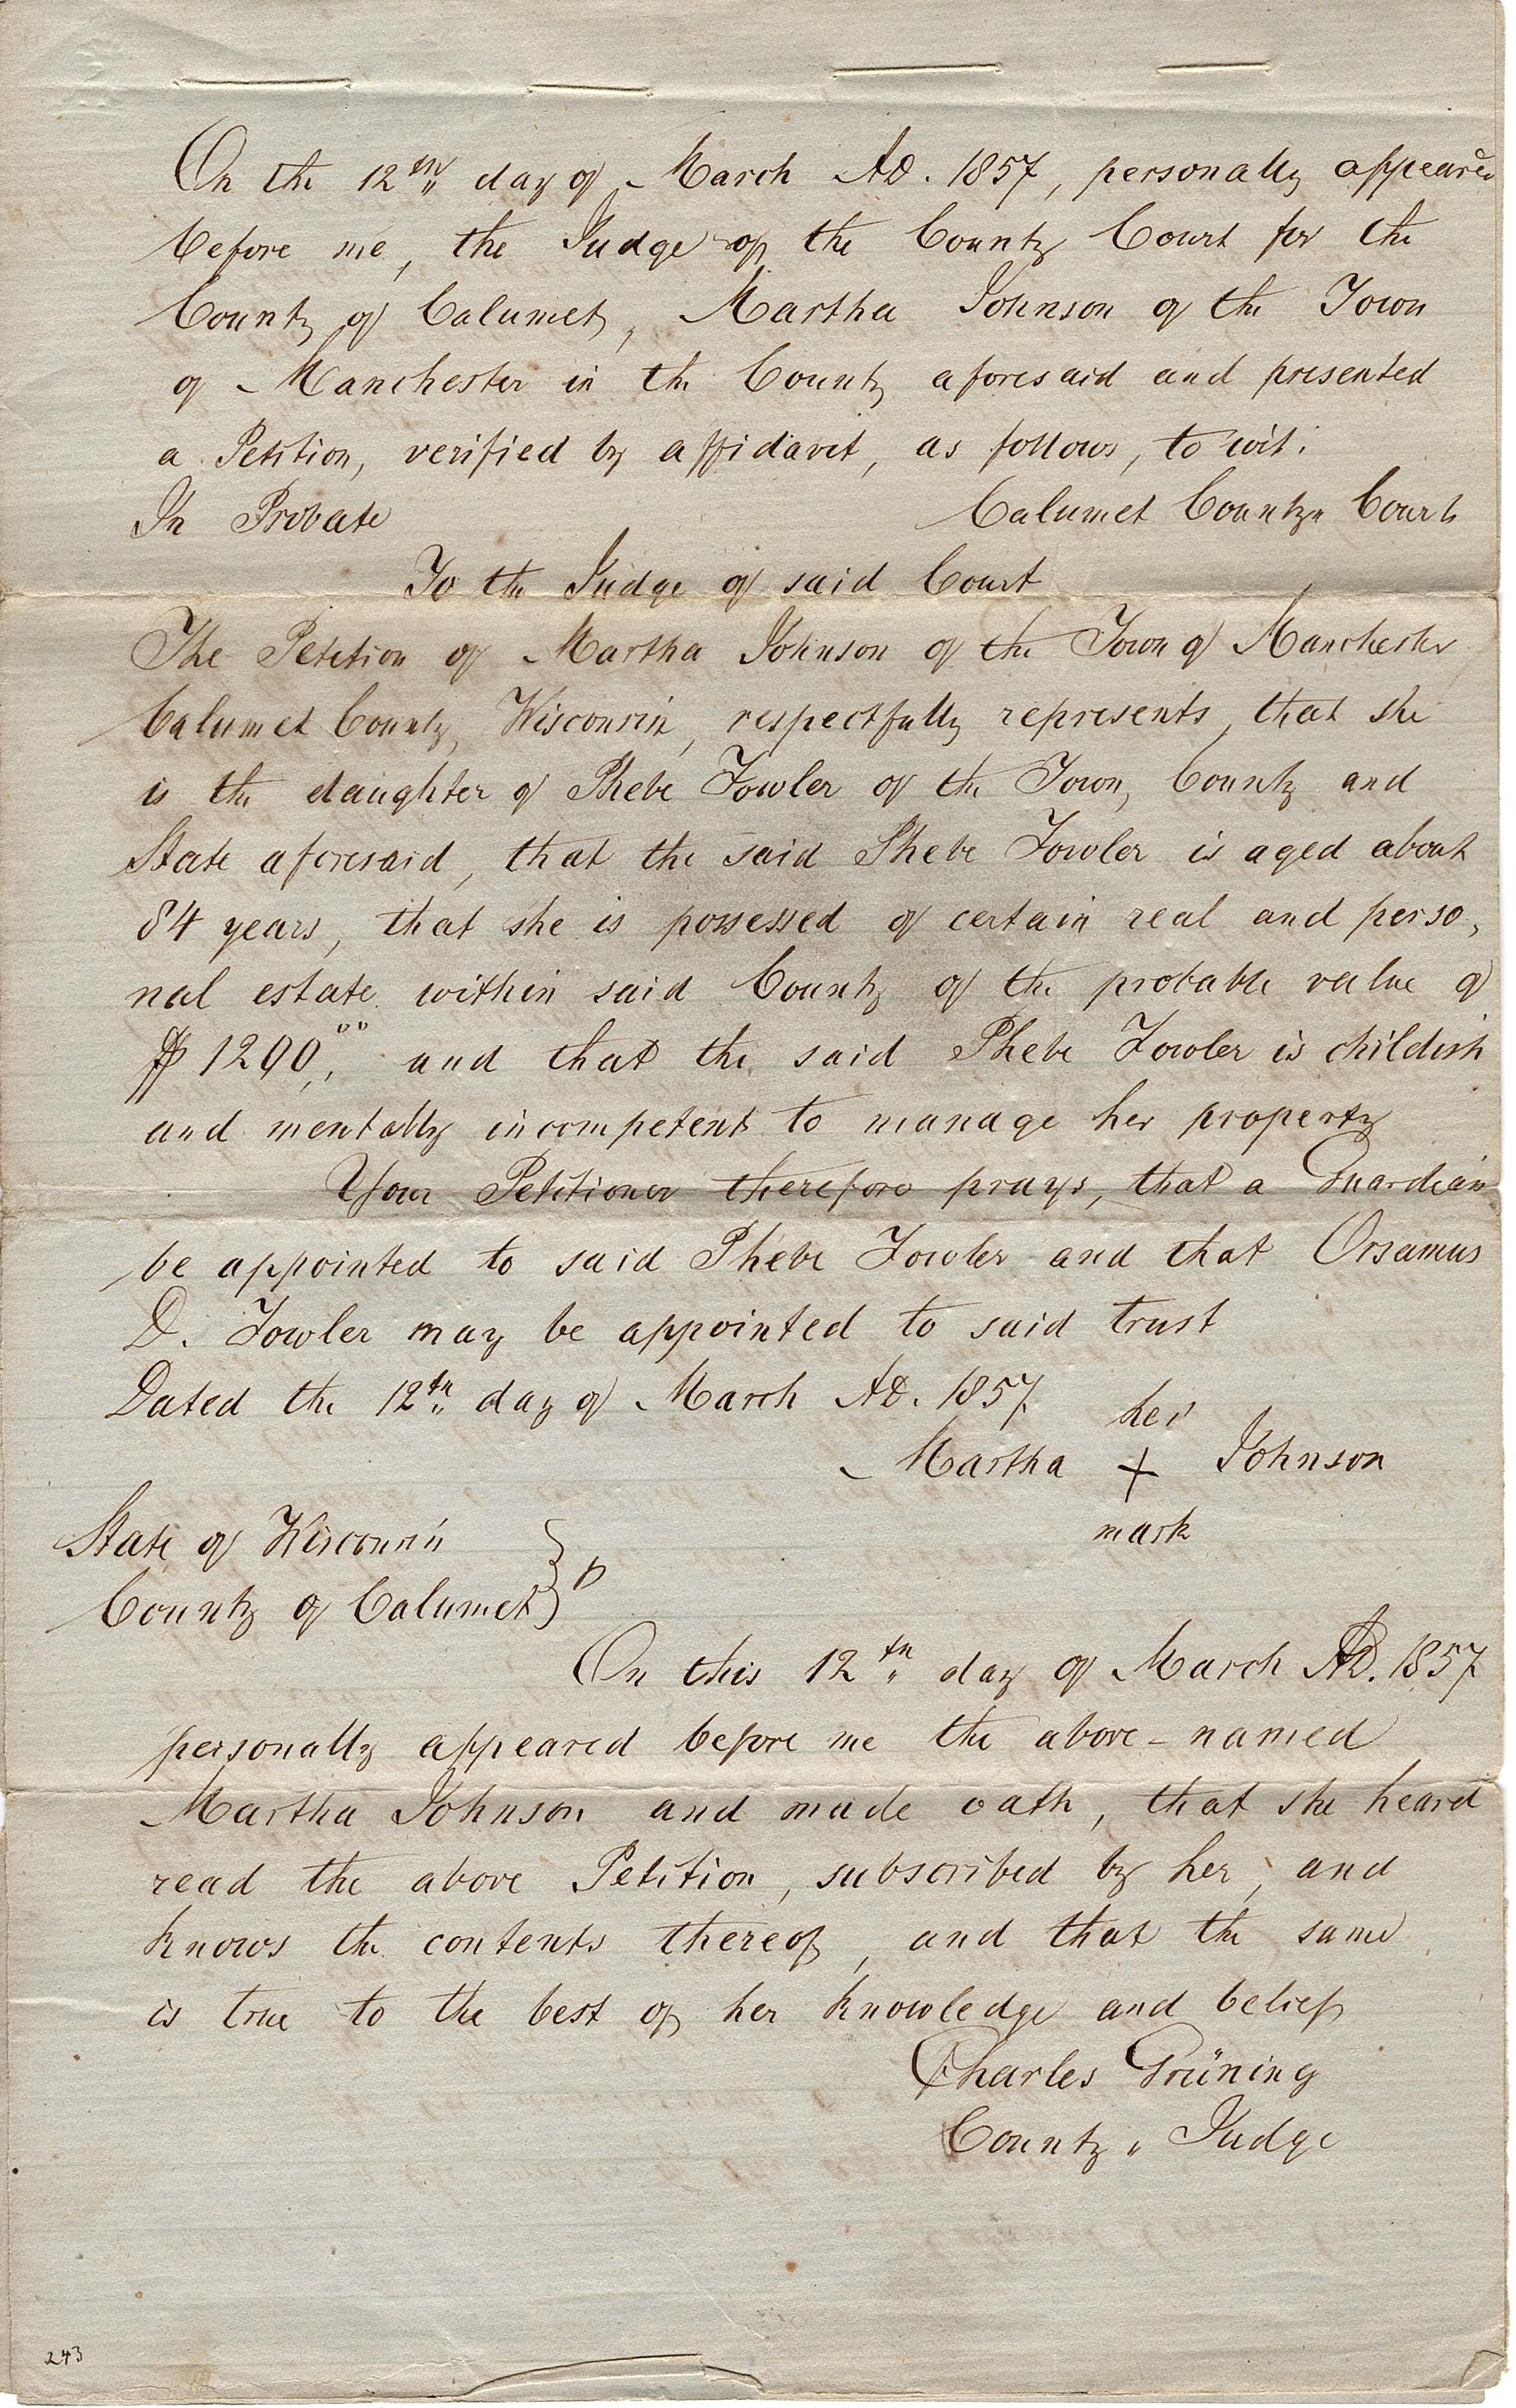 On the 12th day of March AD. 1857, personally appeared
before me, the Judge of the County Court for the
County of Calumet, Martha Johnson of the Town
of Manchester in the County aforesaid and presented
a Petition, verified by affidavit, as follows, to wit:
In Probate Calumet County Court
To the Judge of said Court
The Petition of Martha Johnson of the Town of Manchester
Calumet County, Wisconsin, respectfully represents, that she
is the daughter of Phebe Fowler of the Town, County and
State aforesaid, that the said Phebe Fowler is aged about
84 years, that she is possessed of certain real and perso,
nal estate within said County of the probable value of
$1200,"" and that the said Phebe Fowler is childish
and mentally incompetent to manage her property
Your Petitioner therefore prays, that a Guardian
be appointed to said Phebe Fowler and that Orsamus
D. Fowler may be appointed to said trust
Dated the 12th day of March AD. 1857.
her
Martha + Johnson
mark
State of Wisconsin
County of Calumet } ss
On this 12th day of March AD. 1857
personally appeared before me the above-named
Martha Johnson and made oath, that she heard
read the above Petition, subscribed by her, and
knows the contents thereof, and that the same
is true to the best of her knowledge and belief
Charles Grüning
County Judge
243